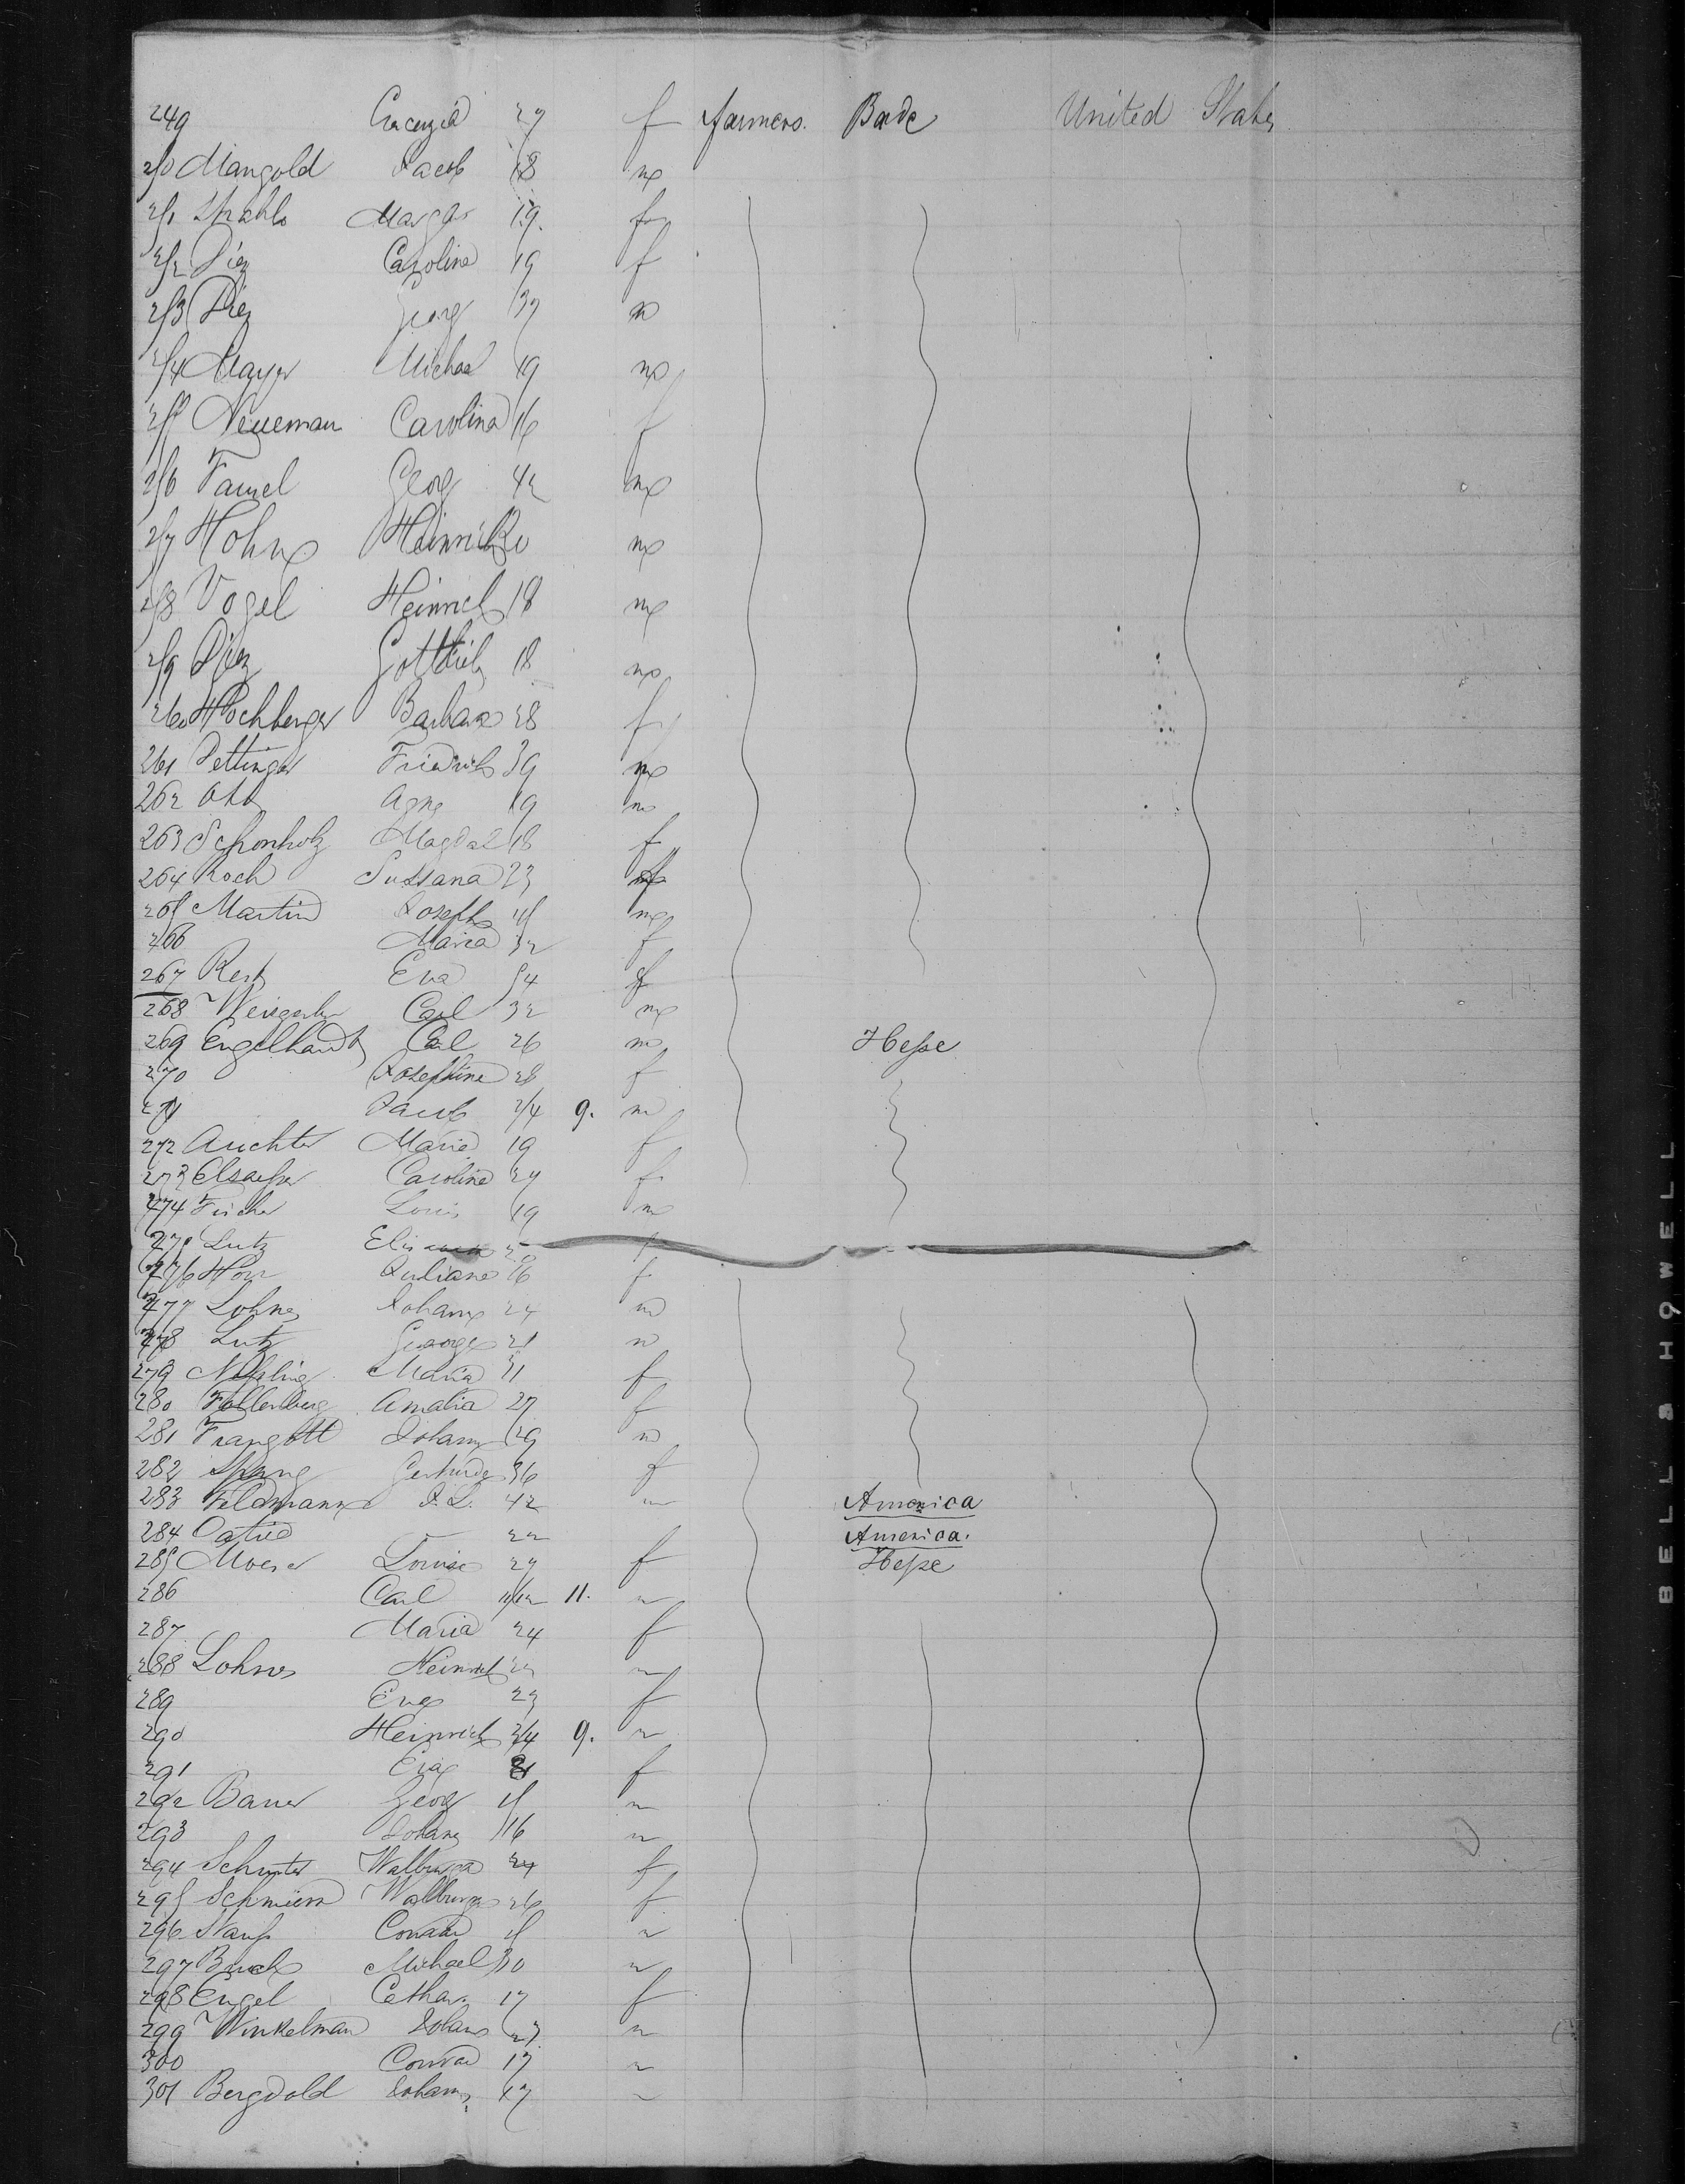 249 27 f farmers. Bade United States
250 Mangold Jacob 18 m
251 Marga 19. f
252 Diez Caroline 19 f
253 Diez Georg 37 m
254 Mayer Michael 19 m
255 Neueman Carolina 16 f
256 Georg 42 m
257 Hohn Heinrich 20 m
258 Vogel Heinrich 18 m
259 Diez Gottlieb 18 m
260 Hochberger Barbara 28 f
261 Dettinger Friedrich 39 m
262 Agne 19 m
263 Schonholz Magdal 18 f
264 Koch Sussana 23 f
265 Martin Joseph 45 m
266 Maria 32 f
267 Eva 54 f
268 Carl 32 m
269 Engelhardt Carl 26 m Hesse
270 Josephine 28 f
271 Jacob 3/4 9. m
272 Auchter Maria 19 f
273 Elsaesser Caroline 27 f
274 Fischer Louis 19 m
275 Lutz 20 f
276 Juliane 16 f
277 Lohnes Johann 24 m
278 Lutz George 21 m
279 Maria 31 f
280 Fallenberg Amalia 27 f
281 Johann 29 m
282 Spang Gertrude 36 f
283 Feldmann J. L. 42 m America
284 22 America.
285 Moeser Louise 27 f Hesse
286 Carl 11/12 11. m
287 Maria 24 f
288 Lohnes Heinrich m
289 Eva 23 f
290 Heinrich 3/4 9. m
291 Eva f
292 Bauer Georg m
293 Johann 16 m
294 Walburga 24 f
295 Walburga 26 f
296 Conrad m
297 Michael 30 m
298 Engel Cathar. 17 f
299 Winkelman Johann 27 m
300 Conrad 17 m
301 Bergdold Johann 17 m
BELL & HOWELL